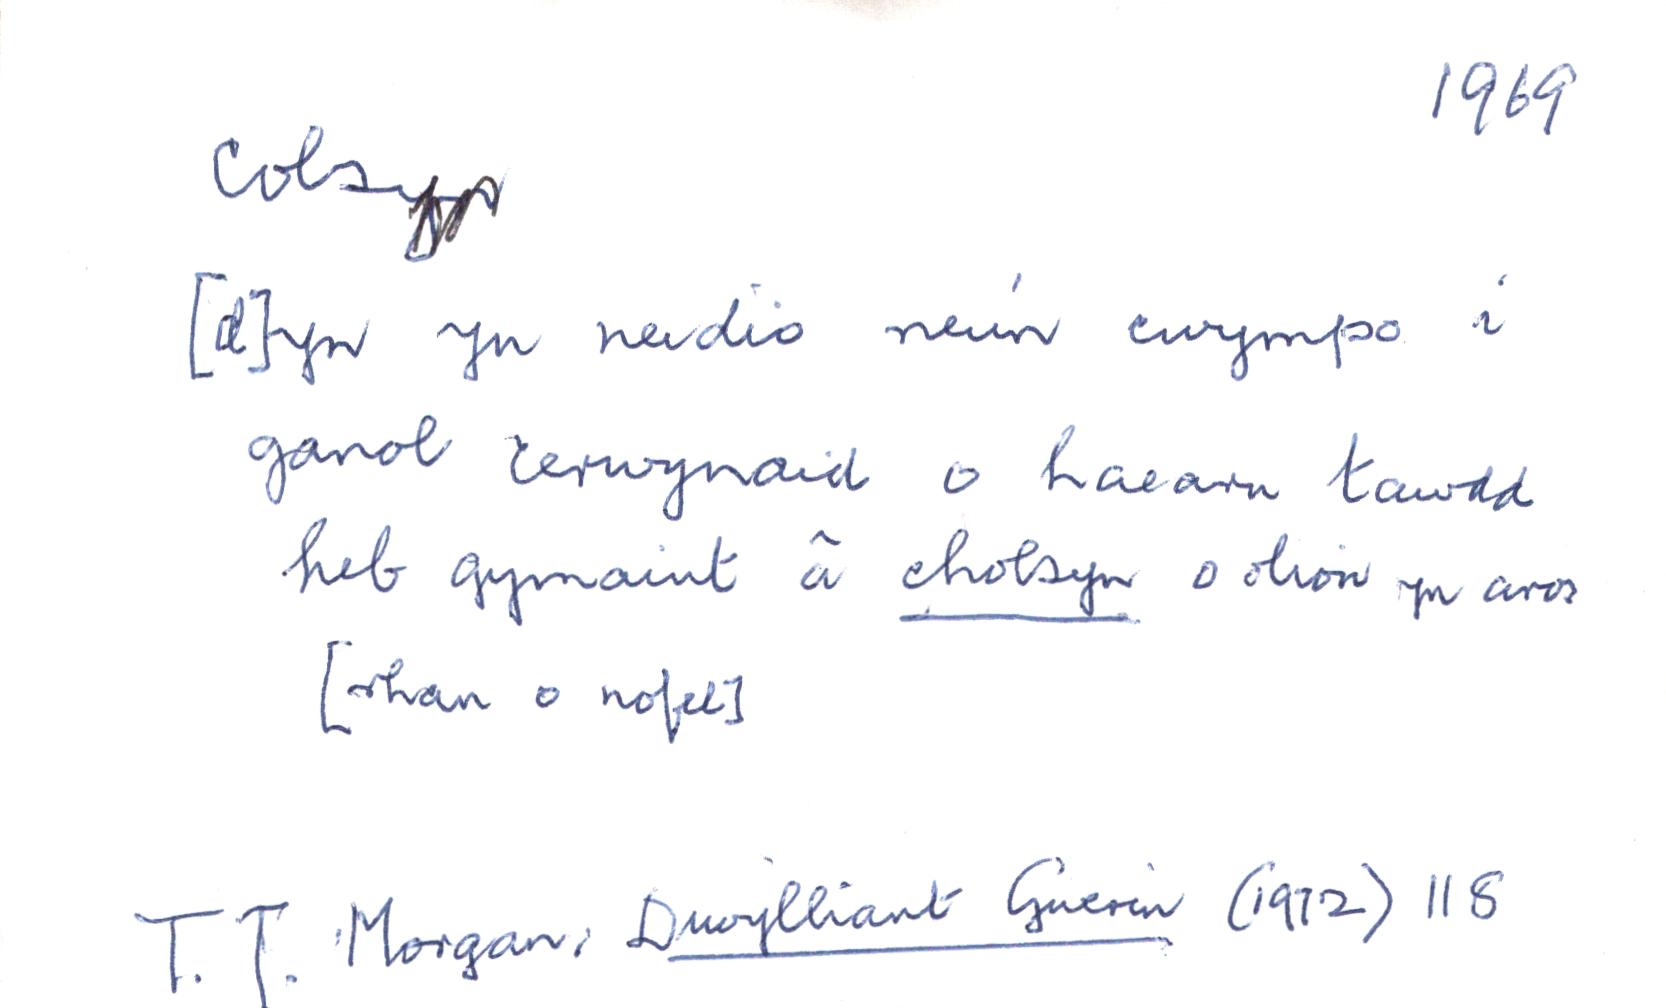 1969
Colsyn
[d]yn yn neidio neu'n cwympo i
ganol cerwynaid o haearn tawdd
heb gymaint â cholsyn o olion yn aros
[rhan o nofel]
T. J. Morgan, Diwylliant Gwerin (1972) 118